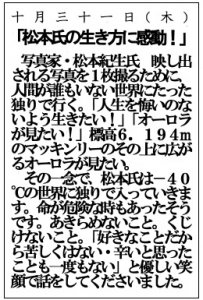 十月三十一日(木)
「松本氏の生き方に感動!」
写真家・松本紀生氏 映し出
される写真を1枚撮るために、
人間が誰もいない世界にたった
独りで行く。「人生を悔いのな
いよう生きたい!」「オーロラ
が見たい!」標高6.194m
のマッキンリーのその上に広が
るオーロラが見たい。
その一念で、松本氏は-40
℃の世界に独りで入っていきま
す。命が危険な時もあったそう
です。あきらめないこと。くじ
けないこと。「好きなことだか
ら苦しくはない・辛いと思った
ことも一度もない」と優しい笑
顔で話をしてくださいました。